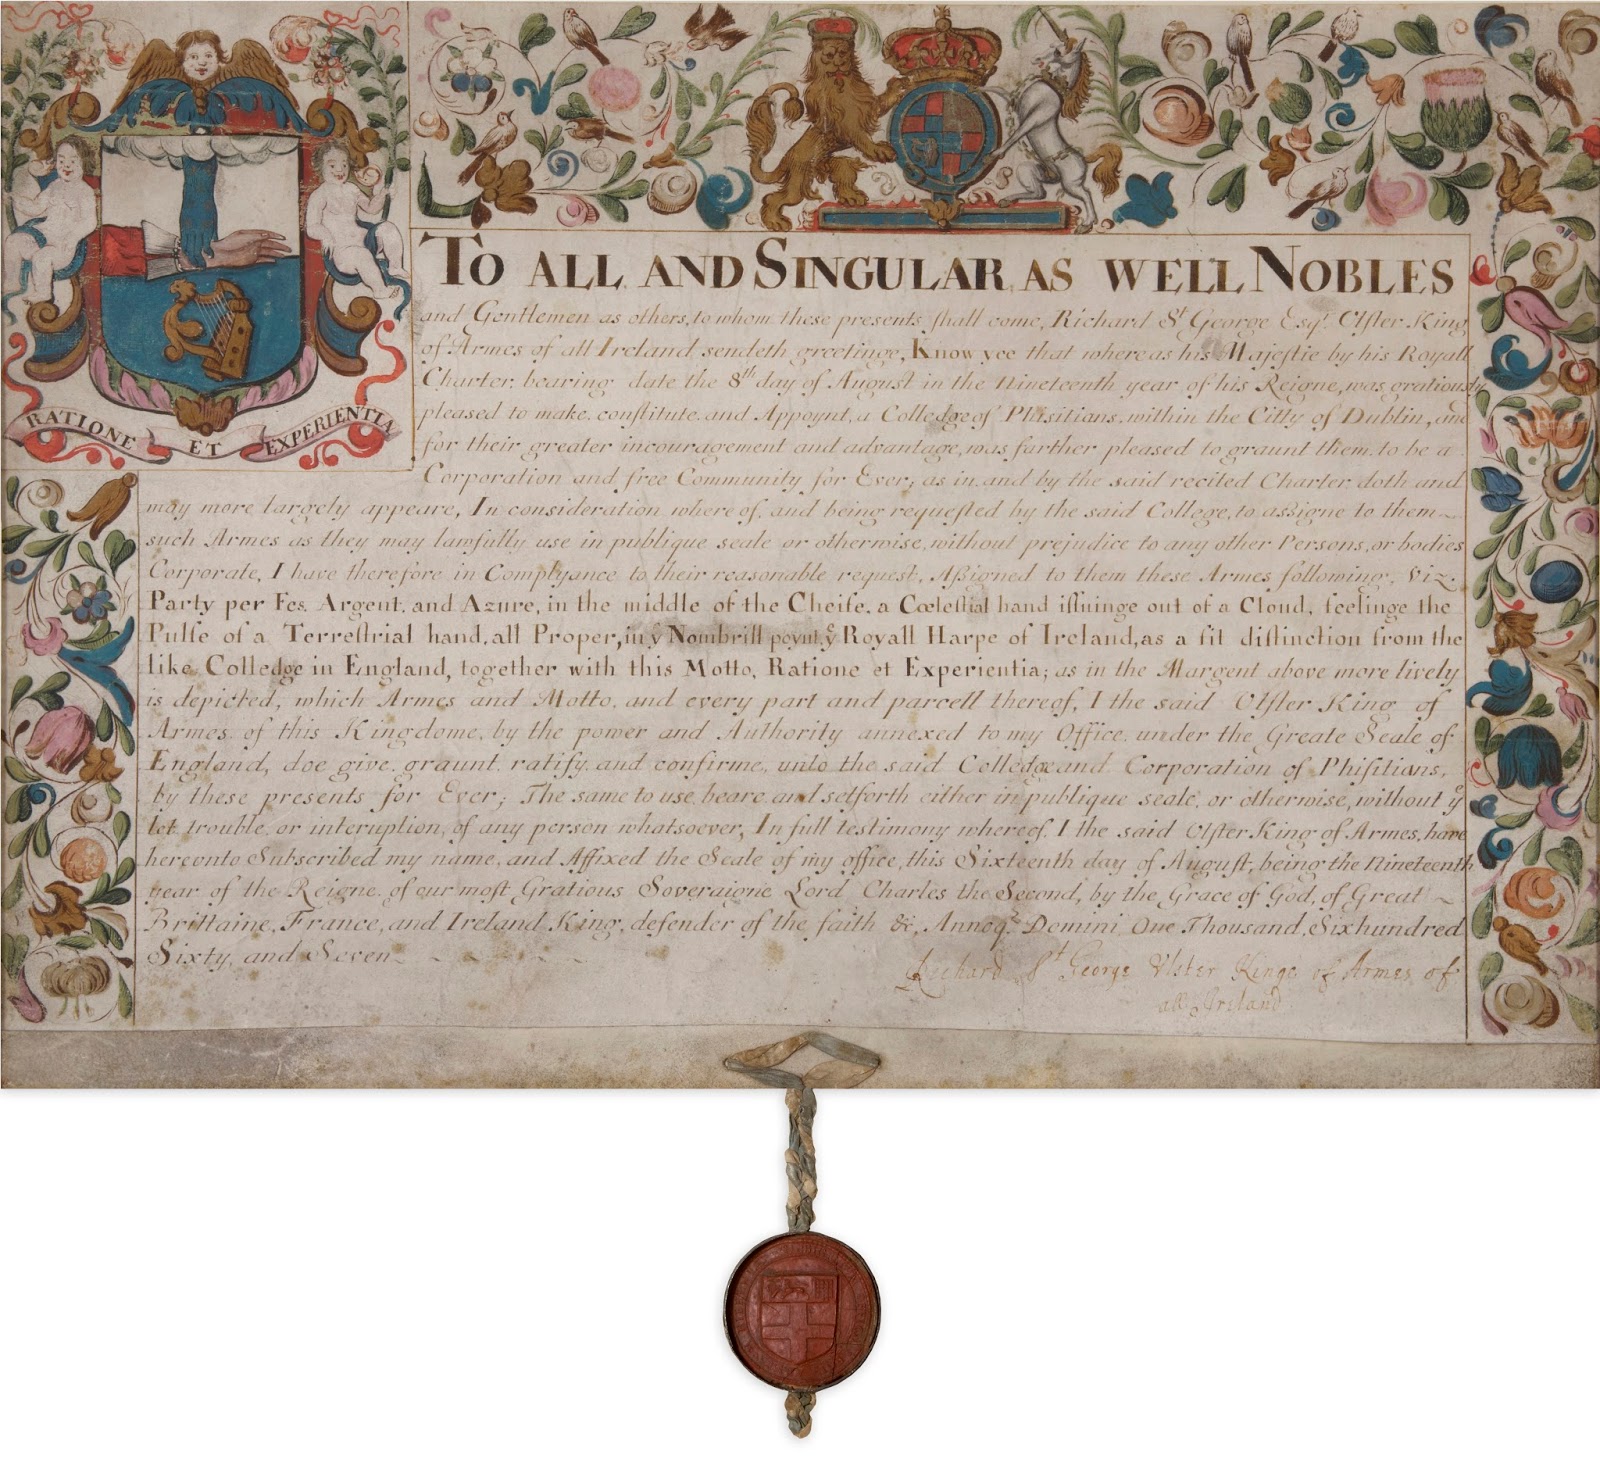 RATIONE ET EXPERIENTIA
TO ALL AND SINGULAR AS WELL NOBLES
and Gentlemen as others, to whom these presents shall come, Richard St George Esqr. Ulster King
of Armes of all Ireland sendeth greetinge, Know yee that whereas his Majestie by his Royall
Charter, bearing date the 8th day of August in the nineteenth year of his Reigne, was gratiously
pleased to make, constitute and Appoynt, a Colledge of Phisitians, within the Citty of Dublin, and
for their greater incouragement and advantage, was farther pleased to graunt them, to be a
Corporation and free Community for Ever; as in and by the said recited Charter doth and
may more largely appeare, In consideration whereof, and being requested by the said College, to assigne to them
such Armes as they may lawfully use in publique seale or otherwise, without prejudice to any other Persons, or bodies
Corporate, I have therefore in Complyance to their reasonable request, Assigned to them these Armes following, viz.
Party per Fes, Argent, and Azure, in the middle of the Cheife, a Cœlestial hand issuinge out of a Cloud, feelinge the
Pulse of a Terrestrial hand, all Proper, in ye Nombrill poynt, ye Royall Harpe of Ireland, as a fit distinction from the
like Colledge in England, together with this Motto, Ratione et Experientia; as in the Margent above more lively
is depicted, which Armes and Motto, and every part and parcell thereof, I the said Ulster King of
Armes of this Kingdome, by the power and Authority annexed to my Office under the Greate Seale of
England, doe give, graunt, ratify, and confirme, unto the said Colledge and Corporation of Phisitians,
by these presents for Ever; The same to use, beare and setforth either in publique seale, or otherwise, without ye
let, trouble, or interuption, of any person whatsoever, In full testimony whereof, I the said Ulster King of Armes, have
hereonto Subscribed my name, and Affixed the Seale of my office, this Sixteenth day of August, being the nineteenth
year of the Reigne, of our most Gratious Soveraigne Lord Charles the Second, by the Grace of God, of Great
Brittaine, France, and Ireland King, defender of the faith &c, Annoq. Domini One Thousand, Sixhundred
Sixty, and Seven
Richard St George Ulster Kinge of Armes of
all Ireland